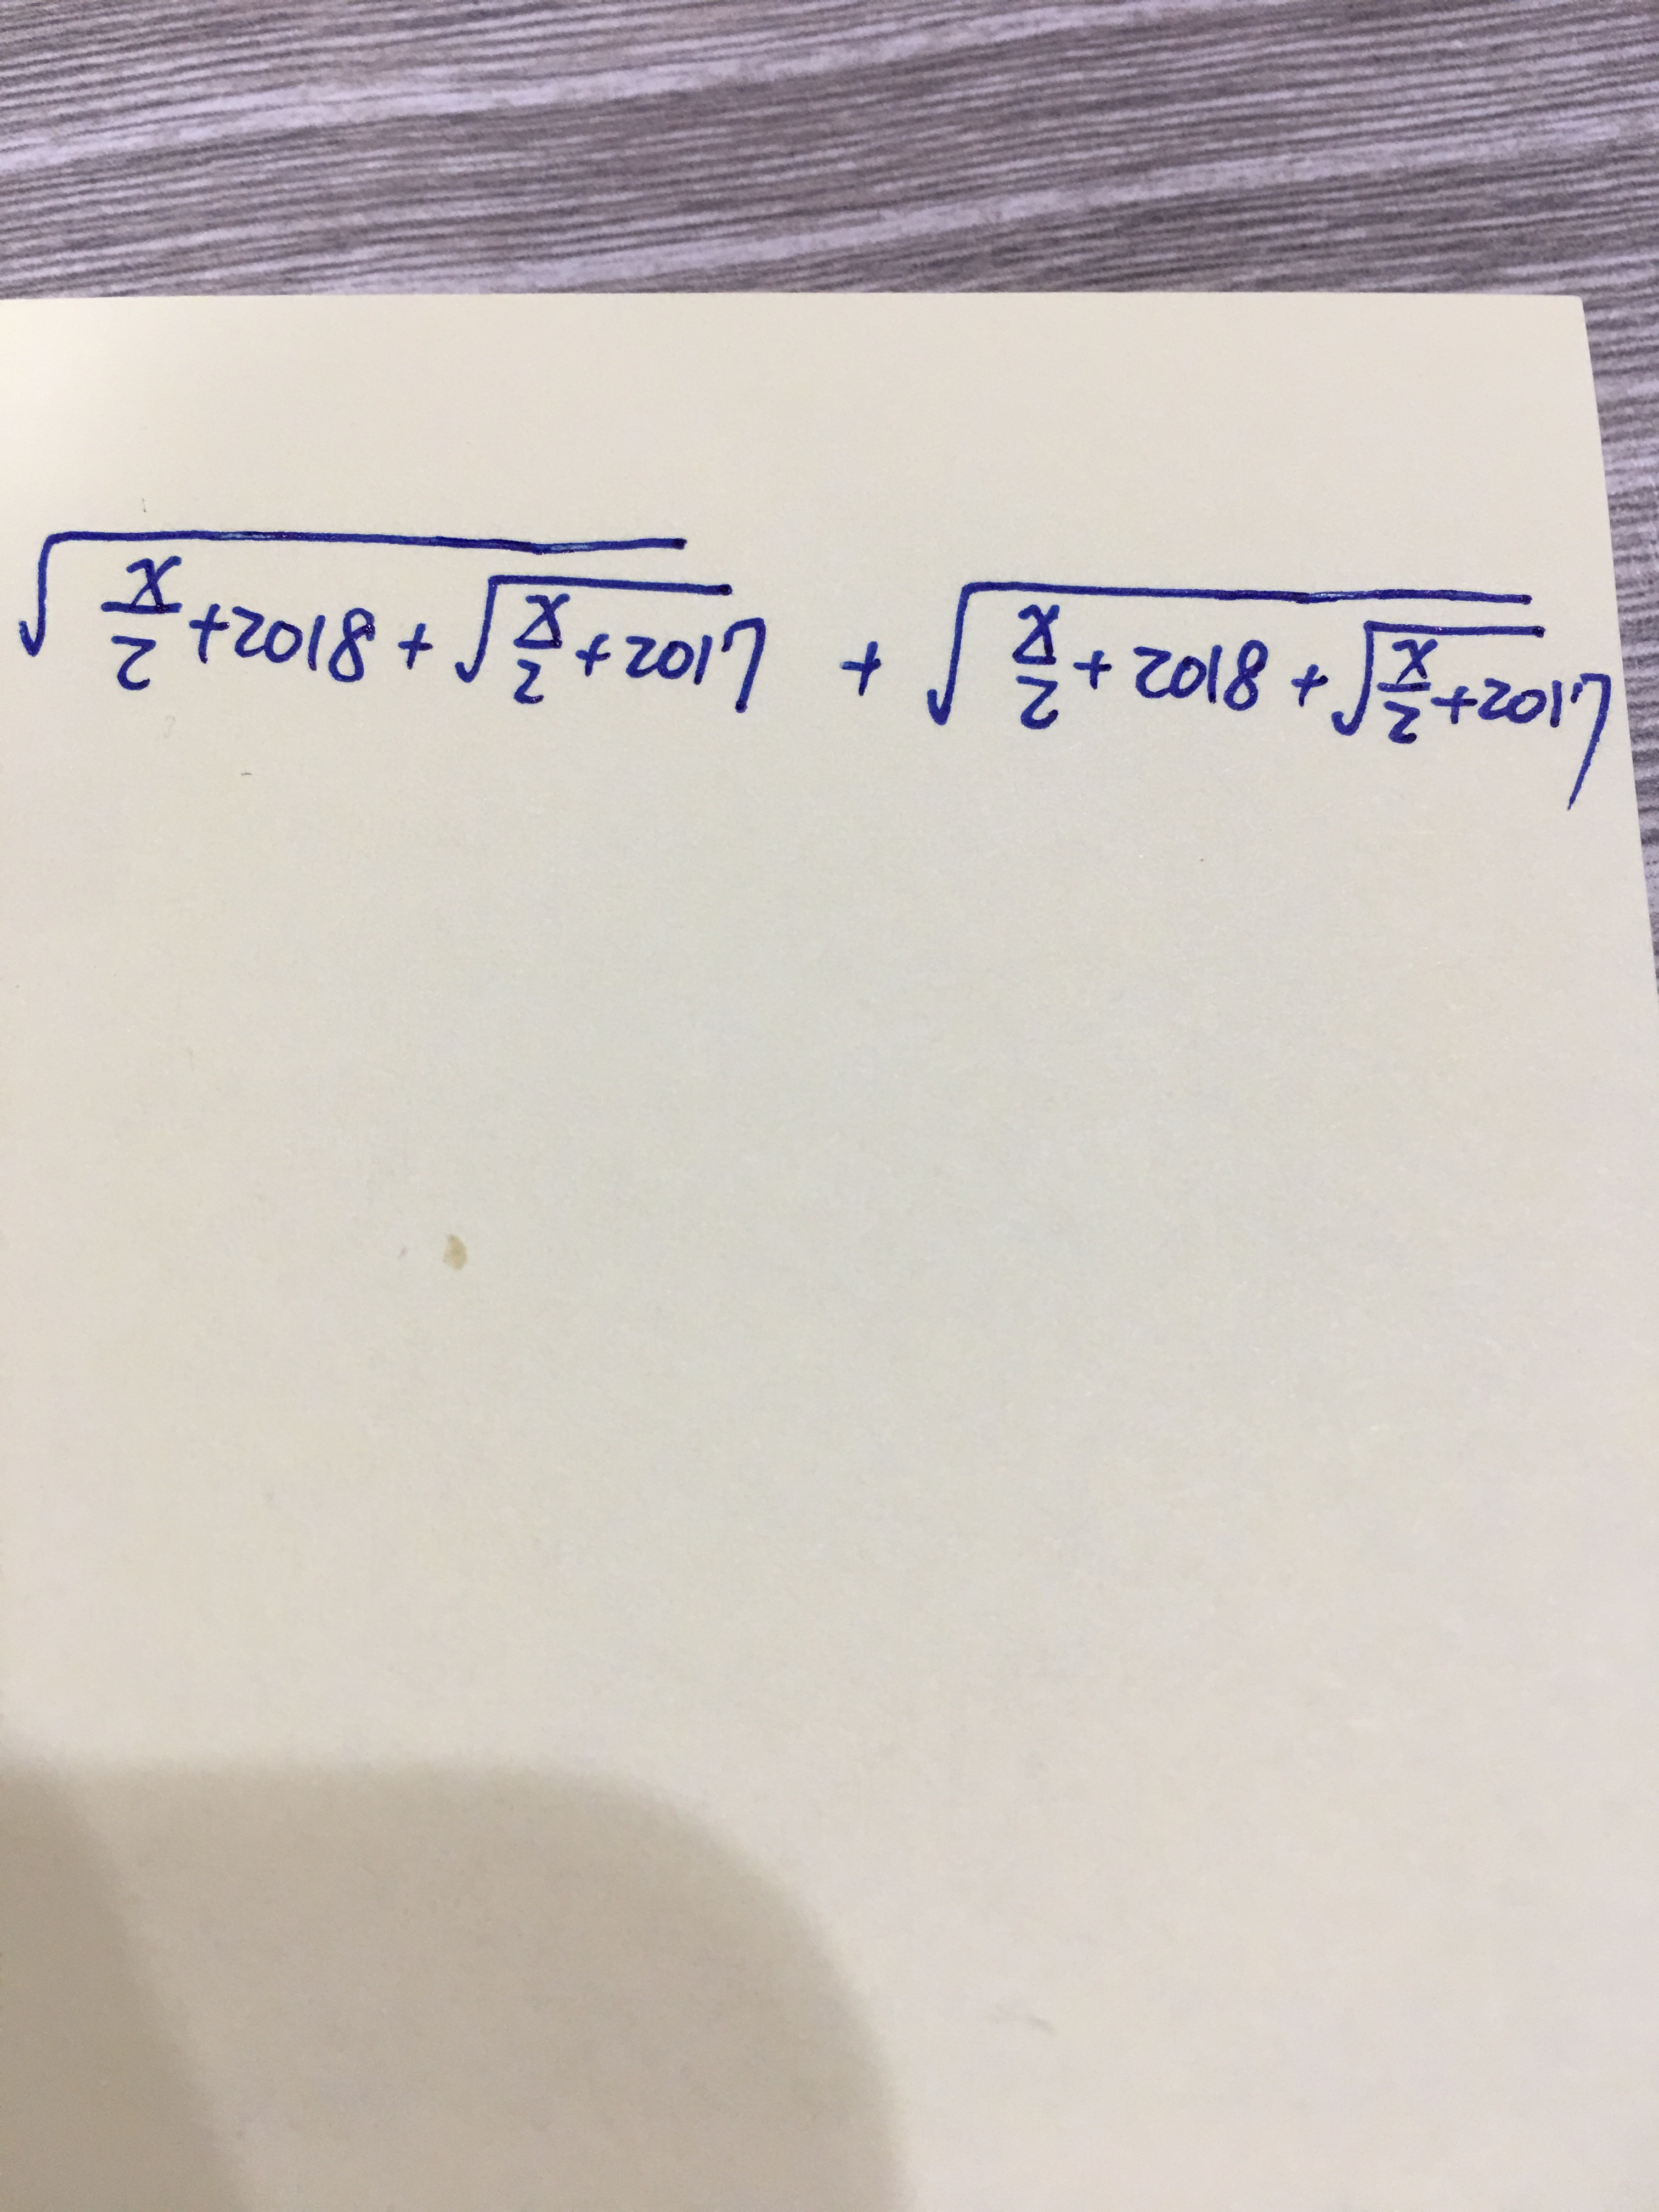 √(x/2 + 2018 + √(x/2 + 2017)) + √(x/2 + 2018 + √(x/2 + 2017))